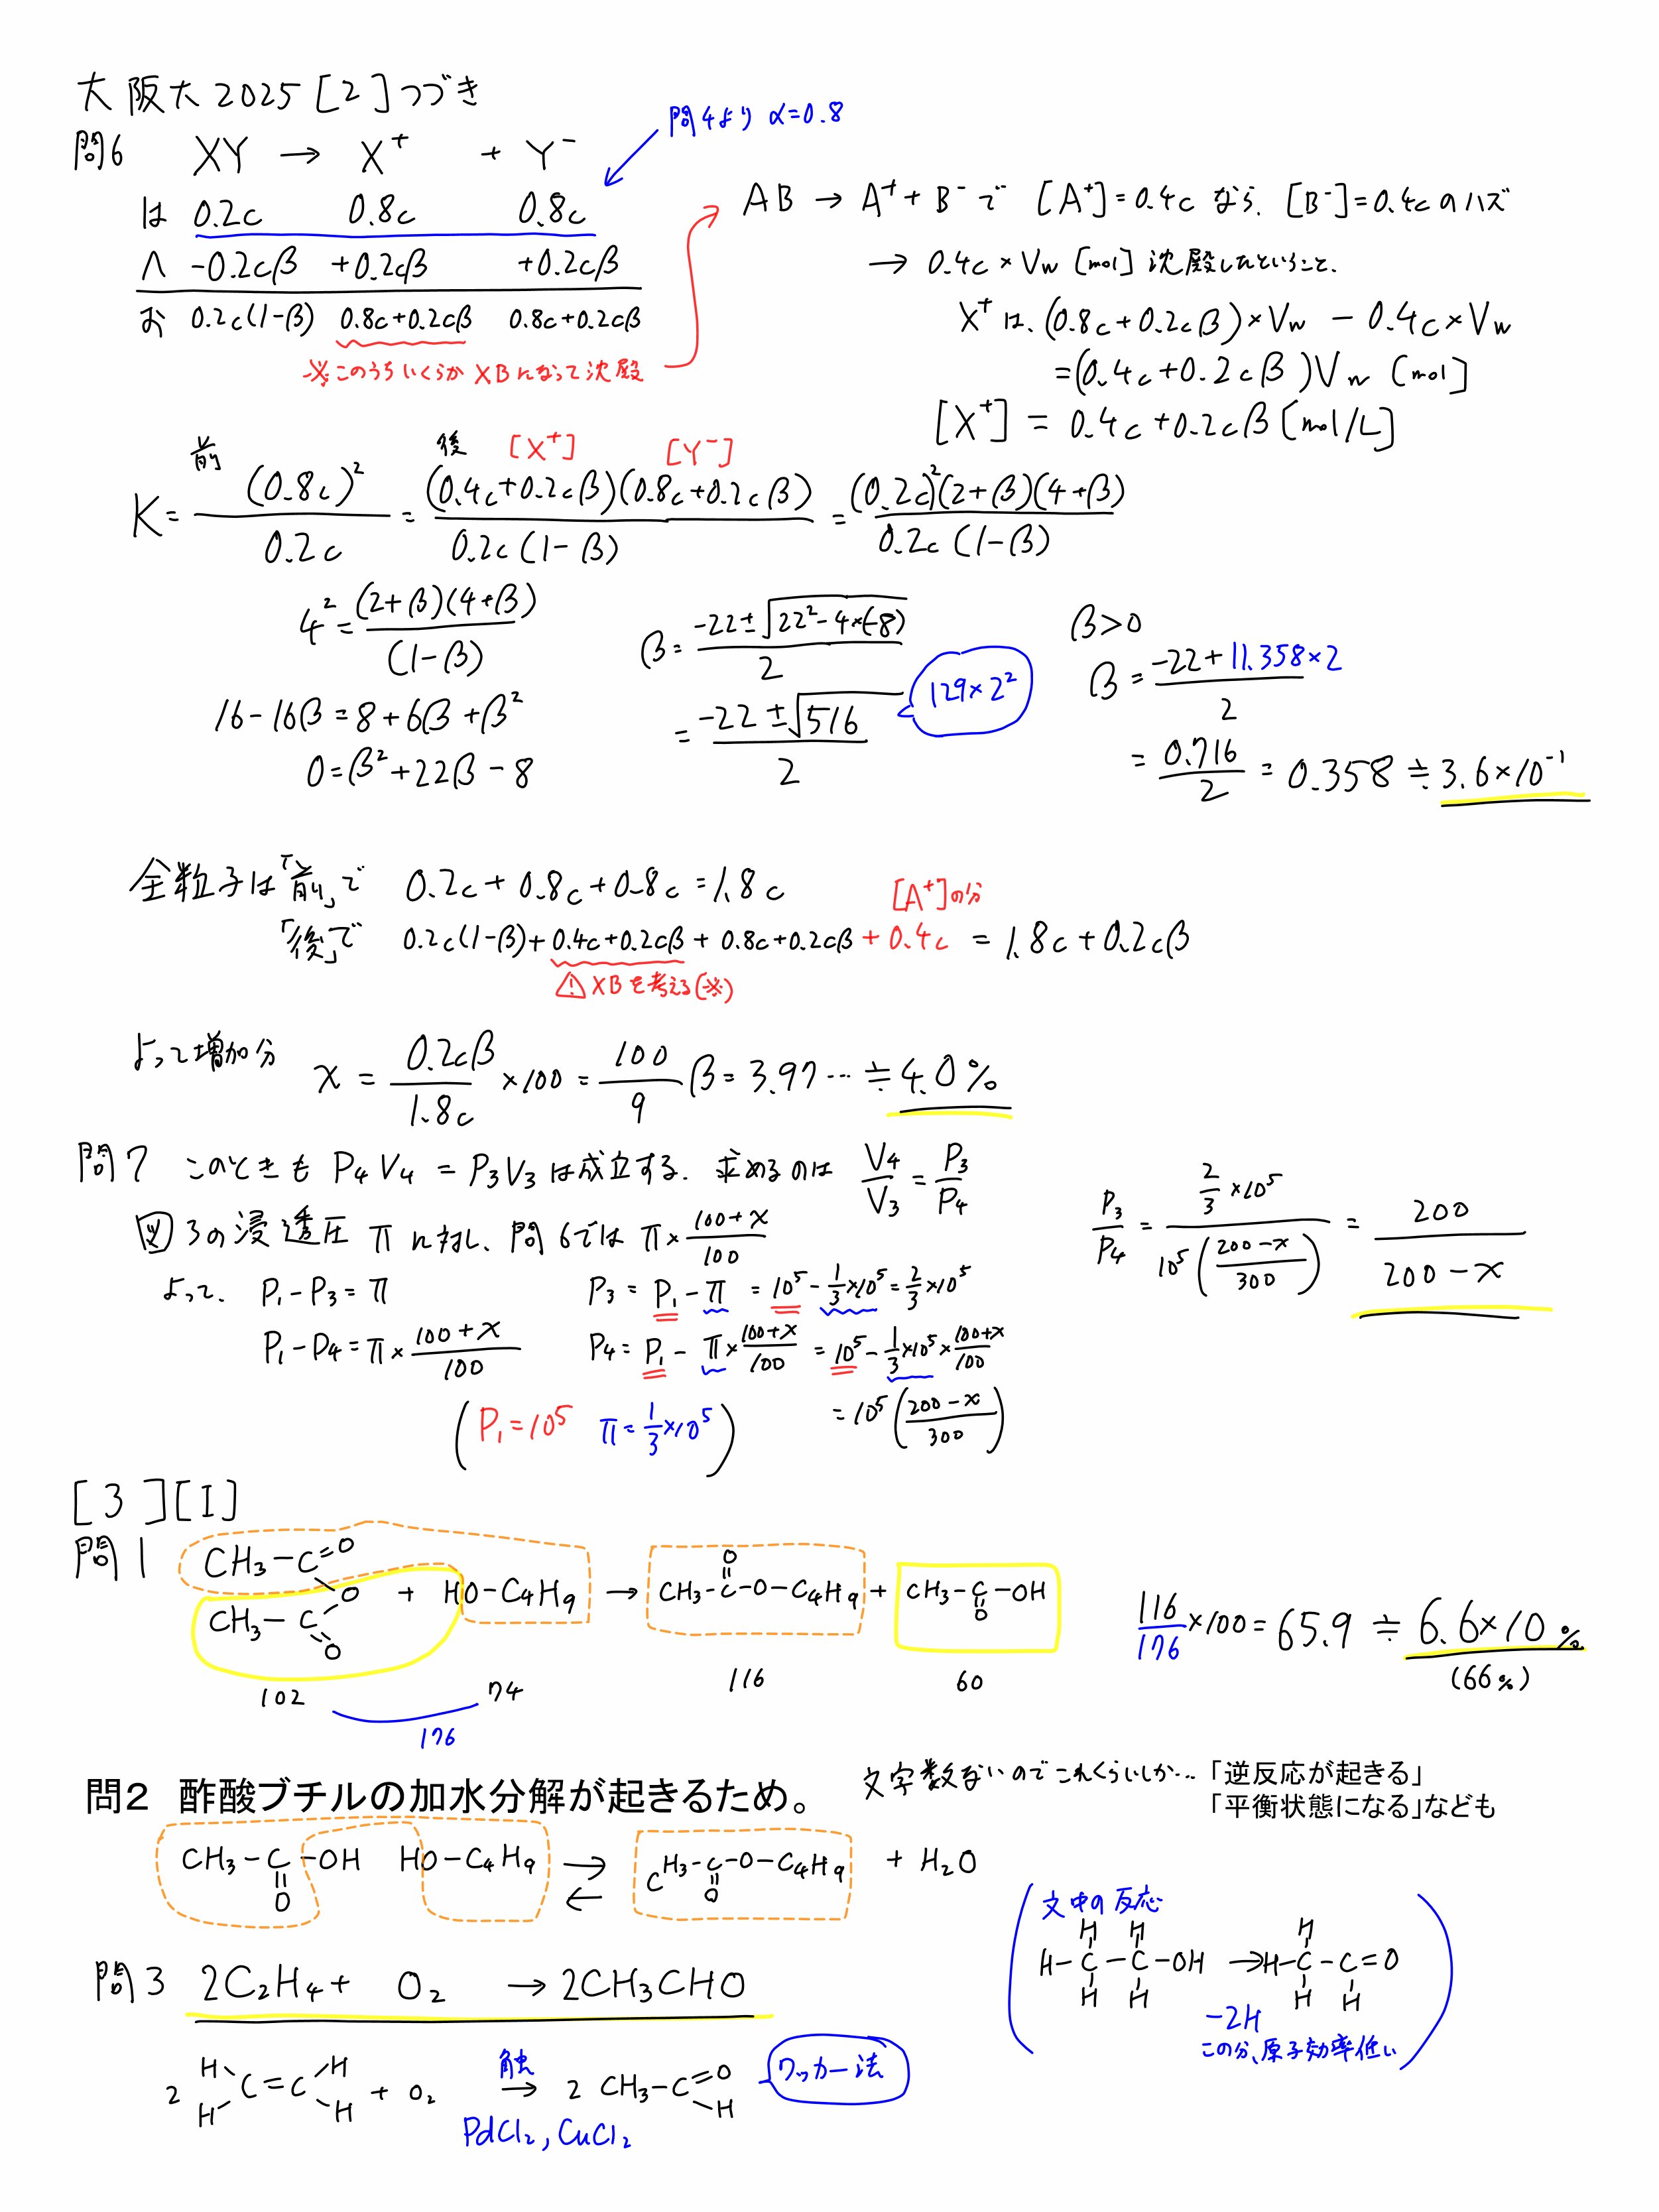 大阪大2025[2]つづき
問4より α=0.8
問6 XY → X⁺ + Y⁻
は 0.2c 0.8c 0.8c
へ -0.2cβ +0.2cβ +0.2cβ
お 0.2c(1-β) 0.8c+0.2cβ 0.8c+0.2cβ
※このうちいくらか XBになって沈殿
AB → A⁺+B⁻で [A⁺]=0.4c なら、[B⁻]=0.4cのハズ
→ 0.4c×Vw [mol] 沈殿したということ.
X⁺は、(0.8c+0.2cβ)×Vw - 0.4c×Vw
=(0.4c+0.2cβ)Vw [mol]
[X⁺] = 0.4c+0.2cβ [mol/L]
前 後 [X⁺] [Y⁻]
K= (0.8c)² / 0.2c = (0.4c+0.2cβ)(0.8c+0.2cβ) / 0.2c(1-β) = (0.2c)²(2+β)(4+β) / 0.2c(1-β)
4² = (2+β)(4+β) / (1-β)
16-16β=8+6β+β²
0=β²+22β-8
β= -22±√22²-4×(-8) / 2
= -22±√516 / 2
129×2²
β>0
β = -22+11.358×2 / 2
= 0.716 / 2 = 0.358 ≒ 3.6×10⁻¹
全粒子は「前」で 0.2c+0.8c+0.8c=1.8c
[A⁺]の分
「後」で 0.2c(1-β)+0.4c+0.2cβ+0.8c+0.2cβ+0.4c = 1.8c+0.2cβ
⚠XBを考える(※)
よって増加分 x = 0.2cβ / 1.8c ×100 = 100 / 9 β = 3.97… ≒ 4.0%
問7 このときも P₄V₄ = P₃V₃は成立する. 求めるのは V₄/V₃ = P₃/P₄
図3の浸透圧 πに対し、問6では π× 100+x / 100
よって、 P₁-P₃=π
P₁-P₄=π× 100+x / 100
P₃ = P₁-π = 10⁵-1/3×10⁵=2/3×10⁵
P₄= P₁-π× 100+x / 100 = 10⁵-1/3×10⁵× 100+x / 100
=10⁵(200-x / 300)
(P₁=10⁵ π=1/3×10⁵)
P₃/P₄ = 2/3×10⁵ / 10⁵(200-x / 300) = 200 / 200-x
[3][I]
問1 CH₃-C=O O CH₃-C=O + HO-C₄H₉ → CH₃-C-O-C₄H₉ O + CH₃-C-OH O
102 74 116 60
176
116 / 176 ×100=65.9 ≒ 6.6×10%
(66%)
問2 酢酸ブチルの加水分解が起きるため。
文字数ないのでこれくらいしか… 「逆反応が起きる」
「平衡状態になる」なども
CH₃-C-OH O HO-C₄H₉ ⇄ CH₃-C-O-C₄H₉ O + H₂O
問3 2C₂H₄+ O₂ → 2CH₃CHO
文中の反応
H H
H-C-C-OH → H-C-C=O
H H H H
-2H
この分、原子効率低い
2 H H C=C H H + O₂ 触 → 2 CH₃-C=O H ワッカー法
PdCl₂, CuCl₂